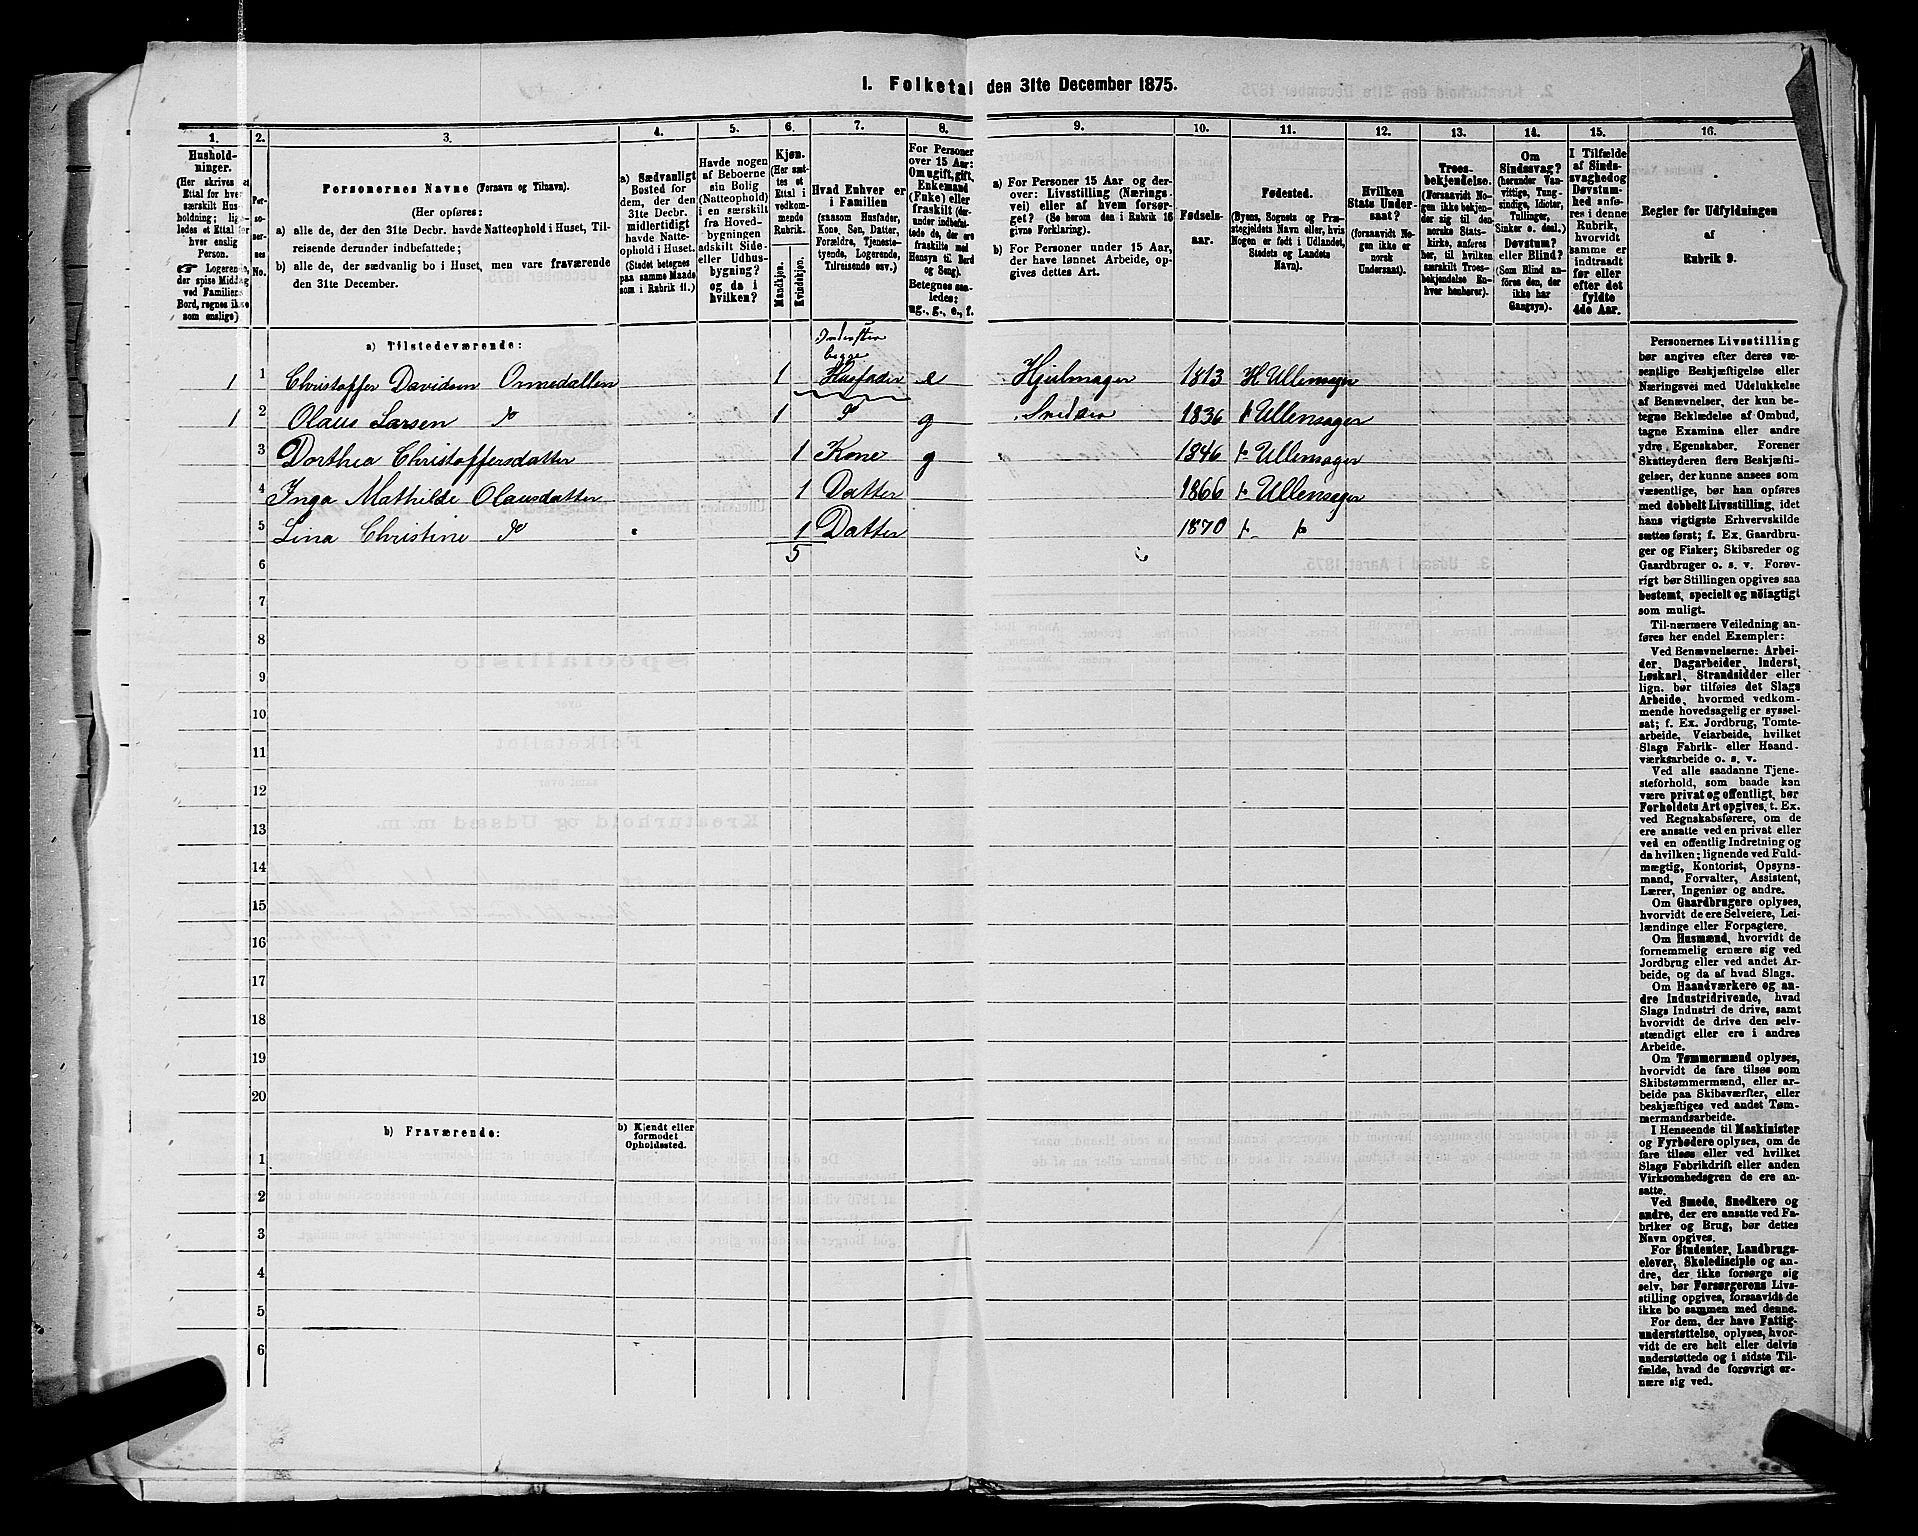 1. Folketal den 31te December 1875.
1.
Hushold-
ninger.
(Her skrives et
Ettal for hver
særskilt Hus-
holdning; lige-
ledes et Ettal for
hver enslig
Person.
Logerende,
der spise Middag
ved Familiens
Bord, regnes ikke
som enslige)
2.
Per-
so-
ner-
nes
No.
3.
Personernes Navne (Fornavn og Tilnavn).
(Her opføres:
a) alle de, der den 31te Decbr. havde Natteophold i Huset, Til-
reisende derunder indbefattede;
b) alle de, der sædvanlig bo i Huset, men vare fraværende
den 31te December.
4.
a) Sædvanligt
Bosted for
dem, der den
31te Decbr.
midlertidigt
havde Natte-
ophold i Huset.
(Stedet betegnes
paa samme Maade
som i Rubrik 11.)
5.
Havde nogen
af Beboerne
sin Bolig
(Natteophold)
i en særskilt
fra Hoved-
bygningen
adskilt Side-
eller Udhus-
bygning?
og da i
hvilken?
6.
Kjøn.
(Her sæt-
tes et
Ettal i
vedkom-
mende
Rubrik.
Mandkjøn.
Kvindekjøn.
7.
Hvad Enhver er
i Familien
(saasom Husfader,
Kone, Søn, Datter,
Forældre, Tjeneste-
tyende, Logerende,
Tilreisende osv.)
8.
For Personer
over 15 Aar:
Om ugift, gift,
Enkemand
(Enke) eller
fraskilt (der-
under indbefat-
tede de, der ere
fraskilte med
Hensyn til Bord
og Seng).
Betegnes saa-
ledes:
ug., g., e., f.
9.
a) For Personer 15 Aar og der-
over: Livsstilling (Nærings-
vei) eller af hvem forsør-
get? (Se herom den i Rubrik 16
givne Forklaring).
b) For Personer under 15 Aar,
der have lønnet Arbeide, op-
gives dettes Art.
10.
Fødsels-
aar.
11.
Fødested.
(Byens, Sognets og Præ-
stegjeldets Navn eller, hvis
Nogen er født i Udlandet,
Stedets og Landets
Navn).
12.
Hvilken
Stats Under-
saat?
(forsaavidt No-
gen ikke er
norsk
Undersaat).
13.
Troes-
bekjendelse.
(Forsaavidt No-
gen ikke bekjen-
der sig til den
norske Stats-
kirke, anføres
her, til hvilken
særskilt Troes-
bekjendelse En-
hver henhører).
14.
Om
Sindssvag?
(herunder Van-
vittige, Tung-
sindige, Idioter,
Tullinger,
Sinker o. desl.)
Døvstum?
eller Blind?
(Som Blind an-
føres den, der
ikke har
Gangsyn).
15.
I Tilfælde
af Sinds-
svaghed og
Døvstum-
hed anfø-
res i denne
Rubrik,
hvorvidt
samme er
indtraadt
før eller
efter det
fyldte
4de Aar.
16.
Regler for Udfyldningen
af
Rubrik 9.
a) Tilstedeværende:
begge
1 1 Christoffer Davidsen Ormedallen 1 Husfader e Hjulmager 1813 Ullensager
1 2 Olaus Larsen 1 g 1836 Ullensager
3 Dorthea Christoffersdatter 1 Kone g 1846 Ullensager
4 Inga Mathilde Olausdatter 1 Datter 1866 Ullensager
5 Lina Christine 1 Datter 1870
6 5
7
8
9
10
11
12
13
14
15
16
17
18
19
20
b) Fraværende:
b) Kjendt eller
formodet
Opholdssted.
1
2
3
4
5
6
Personernes Livsstilling
bør angives efter deres væ-
sentlige Beskjæftigelse eller
Næringsvei med Udelukkelse
af Benævnelser, der kun be-
tegne Beklædelse af Ombud,
tagne Examina eller andre
ydre Egenskaber. Forener
Skatteyderen flere Beskjæfti-
gelser, der kunne ansees som
væsentlige, bør han opføres
med dobbelt Livsstilling, idet
hans vigtigste Erhvervskilde
sættes først; f. Ex. Gaardbru-
ger og Fisker; Skibsreder og
Gaardbruger o. s. v. Forøv-
rigt bør Stillingen opgives saa
bestemt, specielt og nöiagtigt
som muligt.
Til nærmere Veiledning an-
føres her endel Exempler:
Ved Benævnelserne: Arbei-
der, Dagarbeider, Inderst,
Løskarl, Strandsidder eller
lign. bør tilføies det Slags
Arbeide, hvormed vedkom-
mende hovedsagelig er syssel-
sat; f. Ex. Jordbrug, Tomte-
arbeide, Veiarbeide, hvilket
Slags Fabrik- eller Haand-
værksarbeide o. s. v.
Ved alle saadanne Tjene-
steforhold, som baade kan
være privat og offentligt, bør
Forholdets Art opgives, t. Ex.
ved Regnskabsførere, om de
ere ansatte ved en privat eller
ved en offentlig Indretning og
da hvilken; lignende ved Fuld-
mægtig, Kontorist, Opsyns-
mand, Forvalter, Assistent,
Lærer, Ingeniør og andre.
Om Gaardbrugere oplyses,
hvorvidt de ere Selveiere, Lei-
lændinge eller Forpagtere.
Om Husmænd, hvorvidt de
fornemmelig ernære sig ved
Jordbrug eller ved andet Ar-
beide, og da af hvad Slags.
Om Haandværkere og an-
dre Industridrivende, hvad
Slags Industri de drive, samt
hvorvidt de drive den selv-
stændigt eller ere i andres
Arbeide.
Om Tømmermænd oplyses,
hvorvidt de fare tilsøs som
Skibstømmermænd, eller ar-
beide paa Skibsværfter, eller
beskjæftiges ved andet Tøm-
mermandsarbeide.
I Henseende til Maskinister
og Fyrbødere oplyses, om de
fare tilsøs eller ved hvilket
Slags Fabrikdrift eller anden
Virksomhedsgren de ere an-
satte.
Ved Smede, Snedkere og
andre, der ere ansatte ved Fa-
briker og Brug, bør dettes
Navn opgives.
For Studenter, Landbrugs-
elever, Skoledisciple og an-
dre, der ikke forsørge sig
selv, bør Forsørgerens Livs-
stilling opgives, forsaavidt de
ikke bo sammen med denne.
For dem, der have Fattig-
understøttelse, oplyses, hvor-
vidt de ere helt eller delvis
understøttede og i sidste Til-
fælde, hvad de forøvrigt er-
nære sig ved.